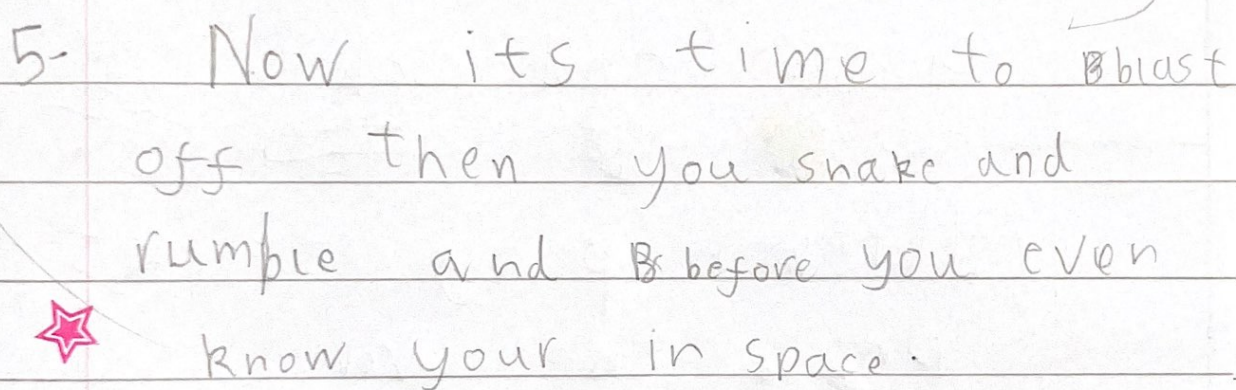 5- Now its time to blast
off then you shake and
rumble and before you even
know your in space.